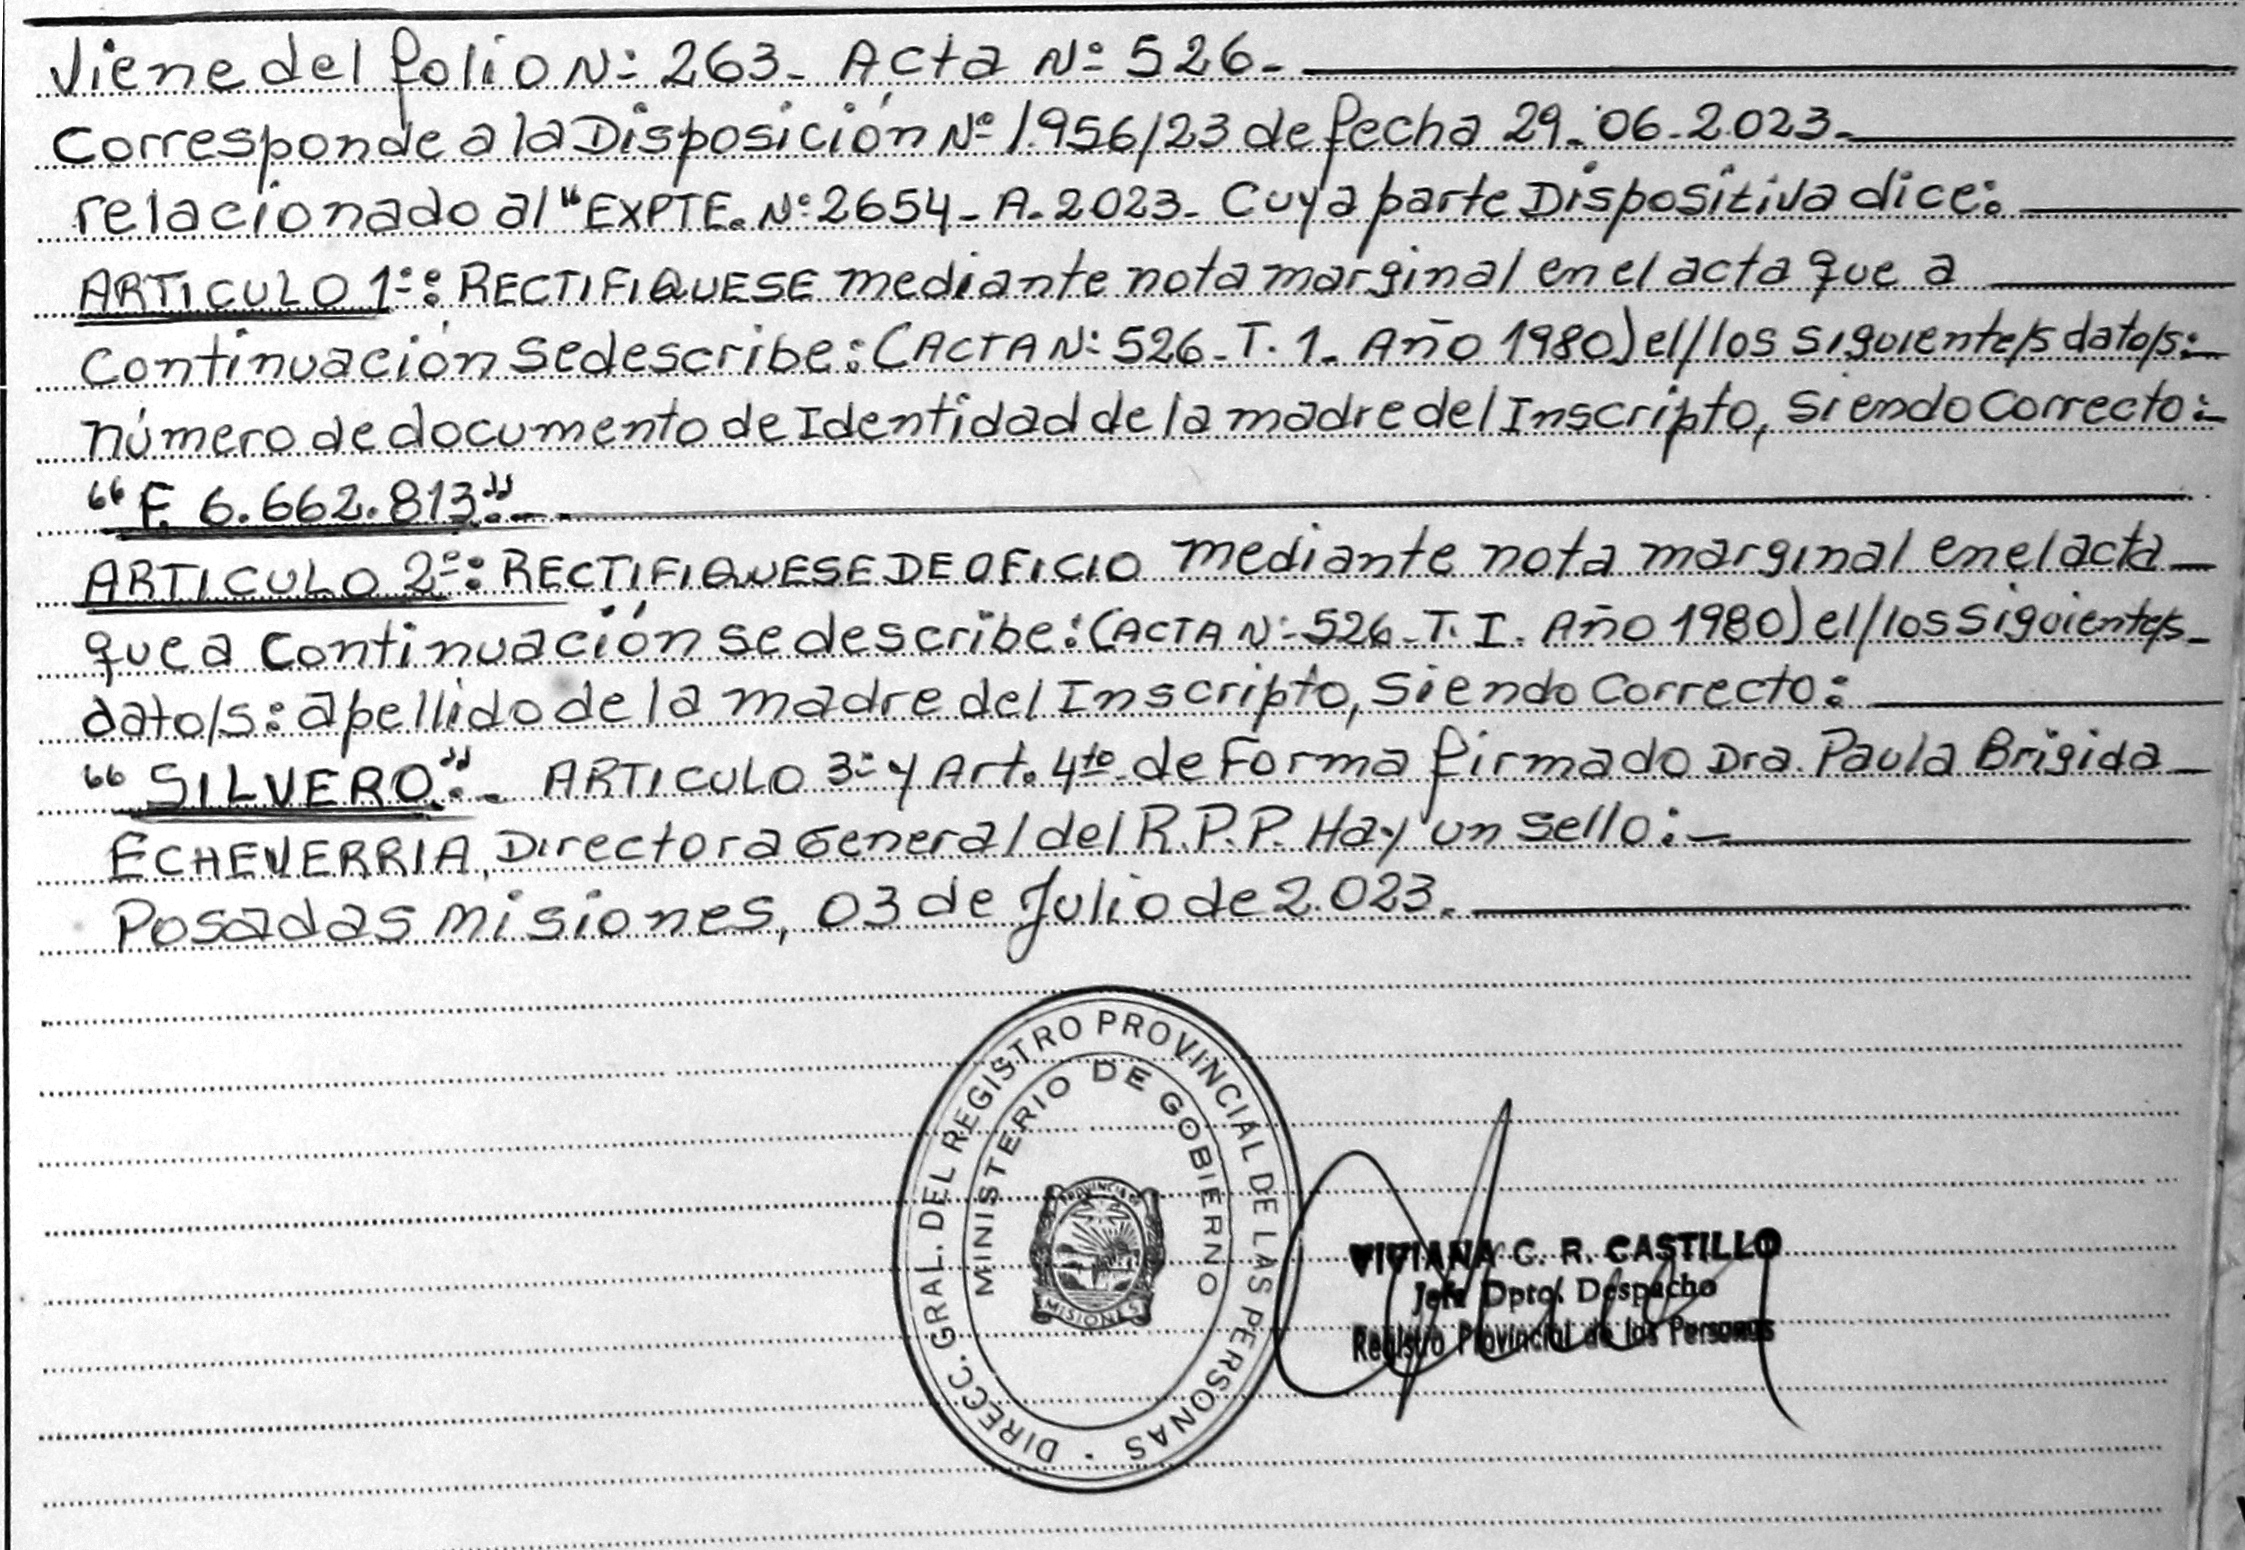 Viene del folio Nº 263- Acta Nº 526-
Corresponde a la Disposición Nº 1.956/23 de fecha 29-06-2.023-
relacionado al "EXPTE. Nº 2654-A-2023- Cuya parte Dispositiva dice:
ARTICULO 1º: RECTIFIQUESE mediante nota marginal en el acta que a
Continuación se describe: (ACTA Nº 526-T. 1. Año 1980) el/los siguiente/s dato/s:
número de documento de Identidad de la madre del Inscripto, siendo Correcto:
"F. 6.662.813".-
ARTICULO 2º: RECTIFIQUESE DE OFICIO mediante nota marginal en el acta
que a Continuación se describe: (ACTA Nº 526-T. I. Año 1980) el/los siguiente/s
dato/s: apellido de la madre del Inscripto, siendo Correcto:
"SILVERO".- ARTICULO 3º y Art. 4to de Forma firmado Dra. Paula Brigida
ECHEVERRIA, Directora General del R.P.P. Hay un sello:
Posadas misiones, 03 de Julio de 2.023.
DIRECC. GRAL. DEL REGISTRO PROVINCIAL DE LAS PERSONAS
MINISTERIO DE GOBIERNO
PROVINCIA DE
MISIONES
VIVIANA C. R. CASTILLO
Jefa Dpto. Despacho
Registro Provincial de las Personas